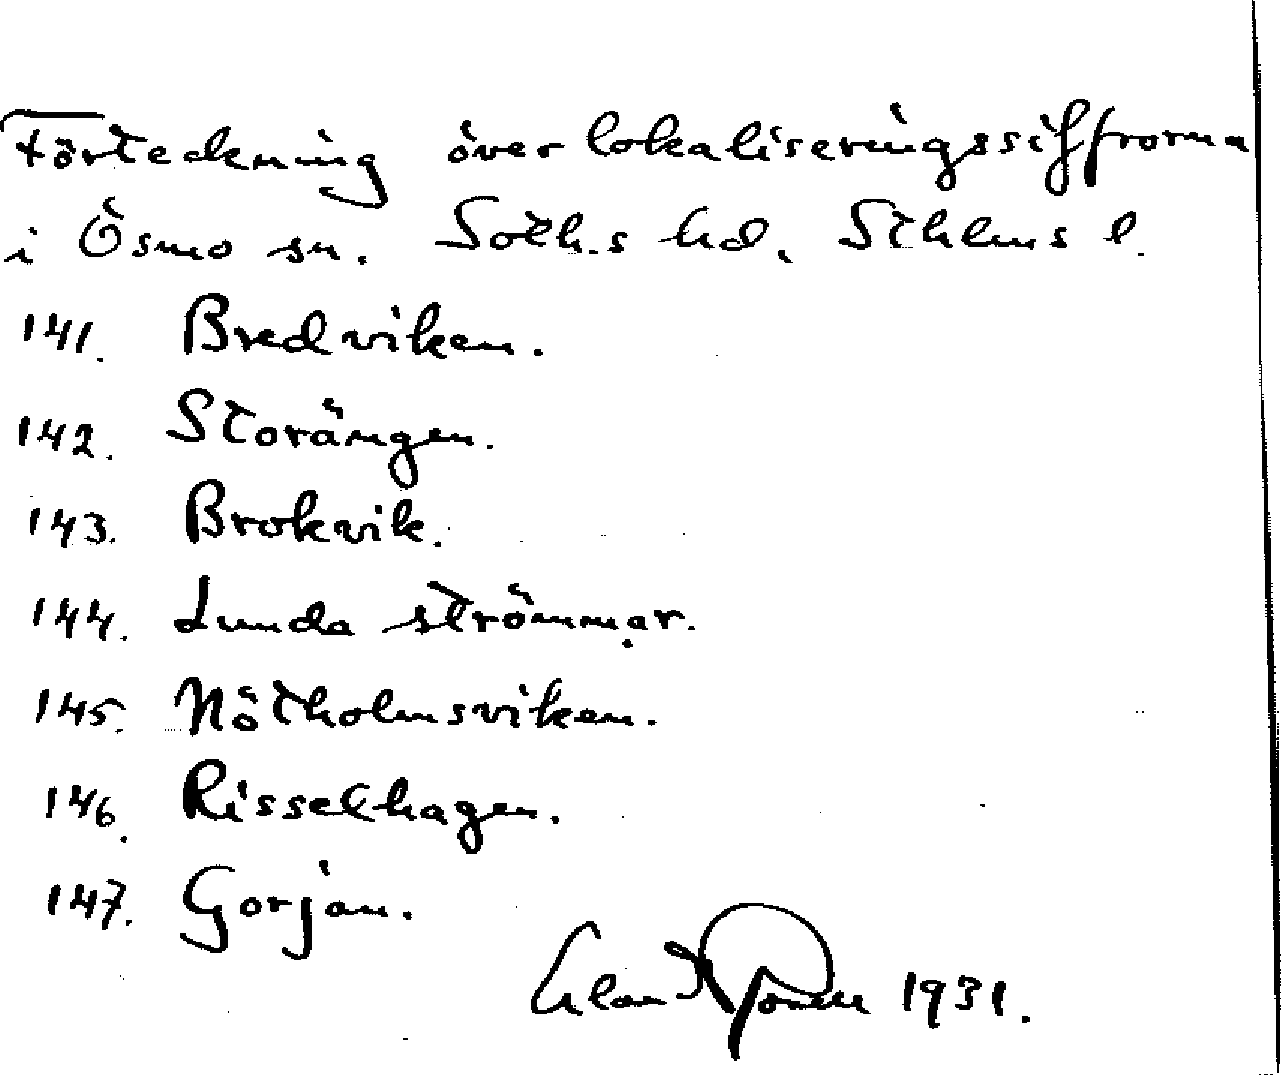 Förteckning över lokaliseringssiffrorna
i Ösmo sn. Soth.s hd. Sthlms l.
141. Bredviken.
142. Storängen.
143. Brokvik.
144. Lunda strömmar.
145. Nötholmsviken.
146. Risselhagen.
147. Gorjan.
1931.